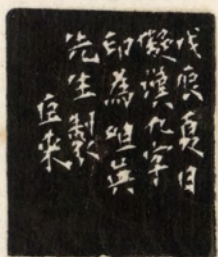 戊寅夏日
擬漢九字
印為雄英
先生製
巨来